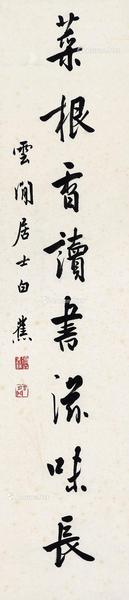 菜根香讀書滋味長
雲間居士白蕉